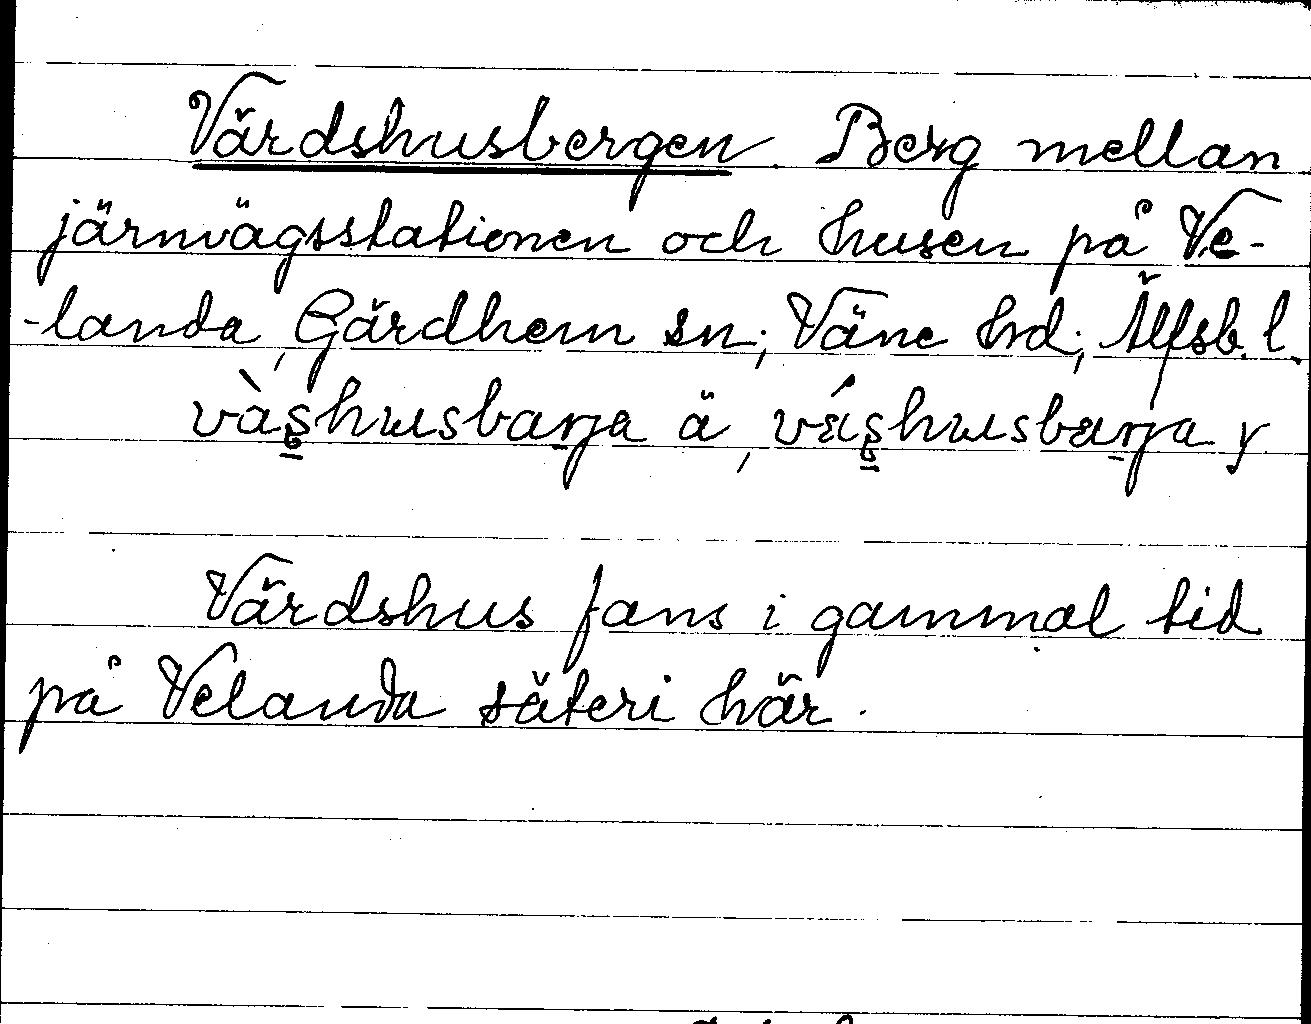 Värdshusbergen. Berg mellan
järnvägsstationen och husen på Ve-
-landa, Gärdhem sn; Väne hd; Älfsb. l.
vàs̱husbarja ä, vás̱husbarja y
Värdshus fans i gammal tid
på Velanda säteri här.